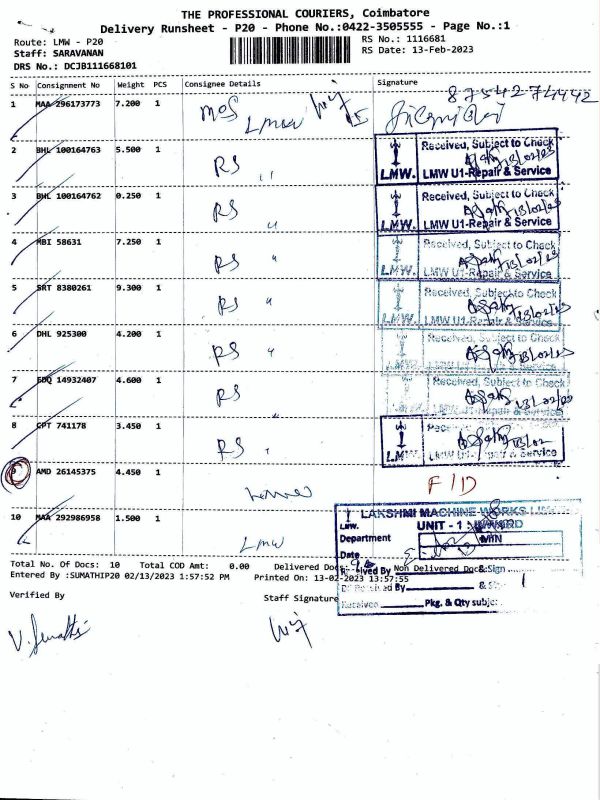 THE PROFESSIONAL COURIERS, Coimbatore
Delivery Runsheet - P20 - Phone No.:0422-3505555 - Page No.:1
Route: LMW - P20
RS No.: 1116681
Staff: SARAVANAN
RS Date: 13-Feb-2023
DRS No.: DCJB111668101
S No Consignment No Weight PCS Consignee Details Signature
8754274442
1 MAA 296173773 7.200 1 MOS LMW
2 BHL 100164763 5.500 1 RS "
Received, Subject to Check
13/02/23
LMW. LMW U1-Repair & Service
3 BHL 100164762 0.250 1 RS "
Received, Subject to Check
13/02/23
LMW. LMW U1-Repair & Service
4 MBI 58631 7.250 1 RS "
Received, Subject to Check
13/02/23
LMW. LMW U1-Repair & Service
5 SRT 8380261 9.300 1 RS "
Received, Subject to Check
13/02/23
LMW. LMW U1-Repair & Service
6 DHL 925300 4.200 1 RS "
Received, Subject to Check
13/02/23
LMW. LMW U1-Repair & Service
7 EDQ 14932407 4.600 1 RS
Received, Subject to Check
13/02/23
LMW U1-Repair & Service
8 CPT 741178 3.450 1 RS "
13/02
LMW
9 AMD 26145375 4.450 1 F/D
10 MAA 292986958 1.500 1 LMW
LAKSHMI MACHINE WORKS LIMITED
LMW. UNIT - 1 INWARD
Department MIN
Date
Total No. Of Docs: 10 Total COD Amt: 0.00 Delivered Docs: 9 Non Delivered Doc: 1
Received By & Sign
Entered By :SUMATHIP20 02/13/2023 1:57:52 PM Printed On: 13-02-2023 13:57:55
Received Pkg. & Qty subject
Verified By Staff Signature
V. Sumathi